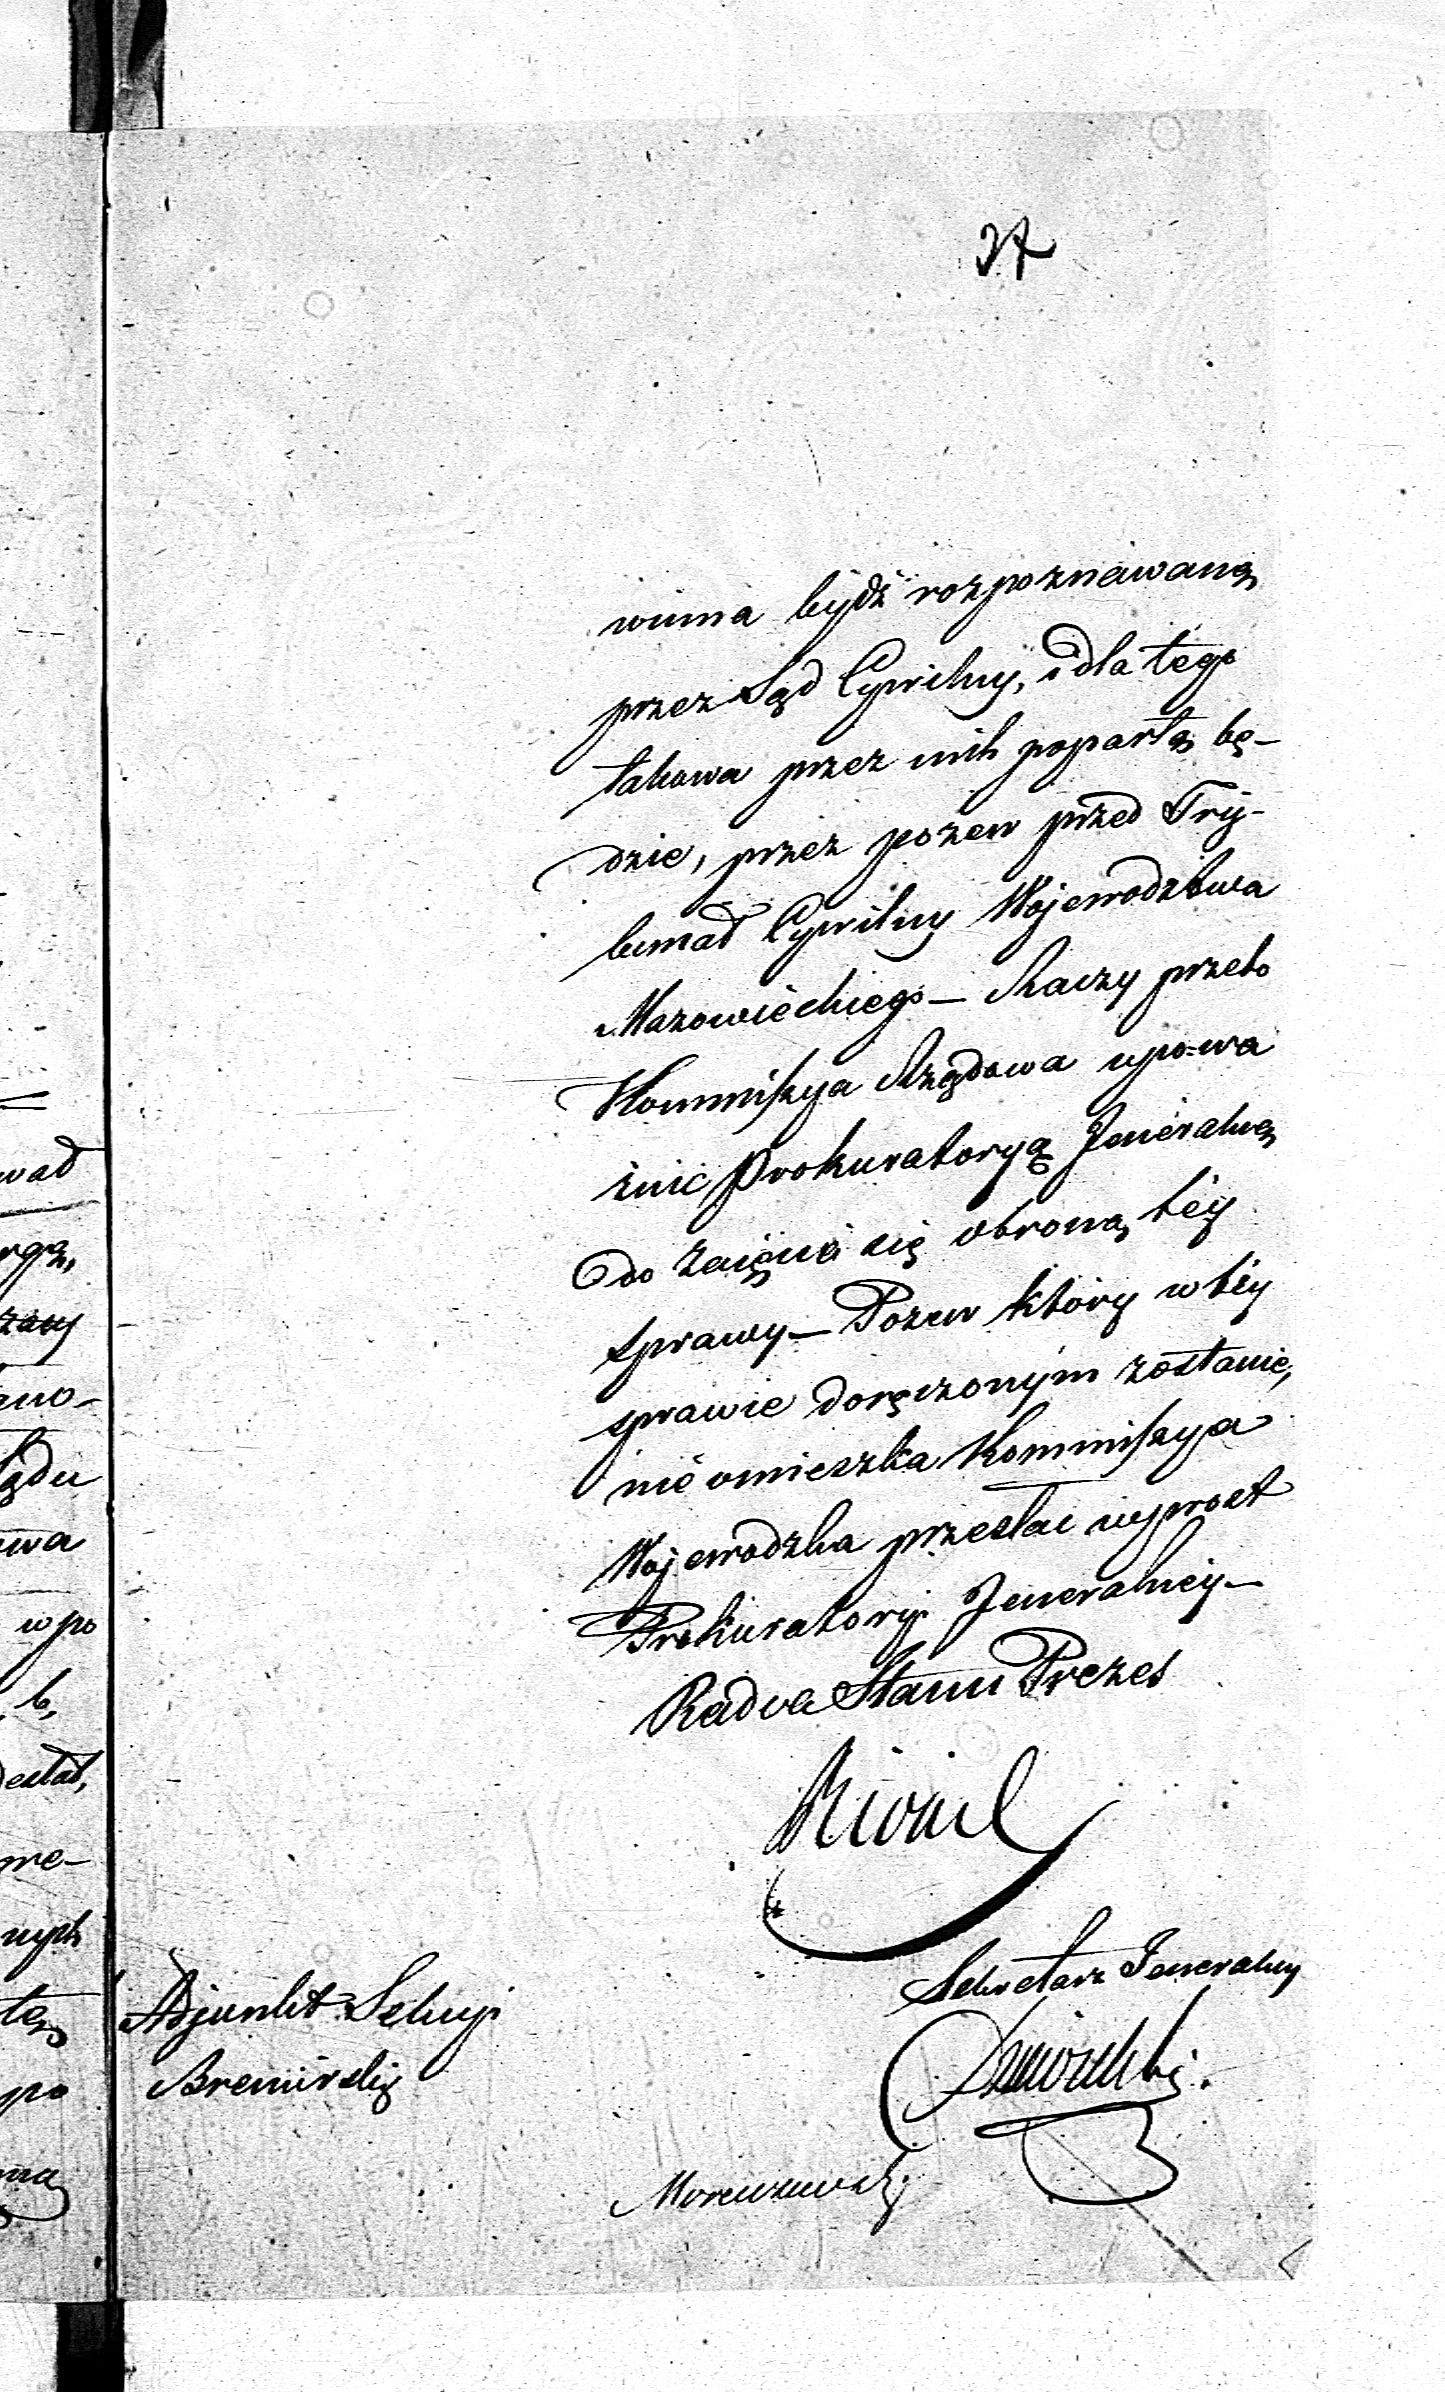 37
winna bydź rozpoznawaną
przez Sąd Cywilny, i dla tego
takowa przez nich popartą bę-
dzie, przez pozew przed Try-
bunał Cywilny Województwa
Mazowieckiego – Raczy przeto
Kommissya Rządowa upowa
żnić Prokuratoryą Jeneralną
do zaięcia się obroną téy
sprawy – Pozew który w téy
sprawie doręczonym zostanie,
nie omieszka Kommissya
Wojewodzka przesłać wprost
Prokuratoryi Jeneralnéy –
Radca Stanu Prezes
Sekretarz Jeneralny
Adjunkt Sekcyi
wad
rgą,
zany
ano-
ądu
wa
w po
b,
me-
nych
tę
po